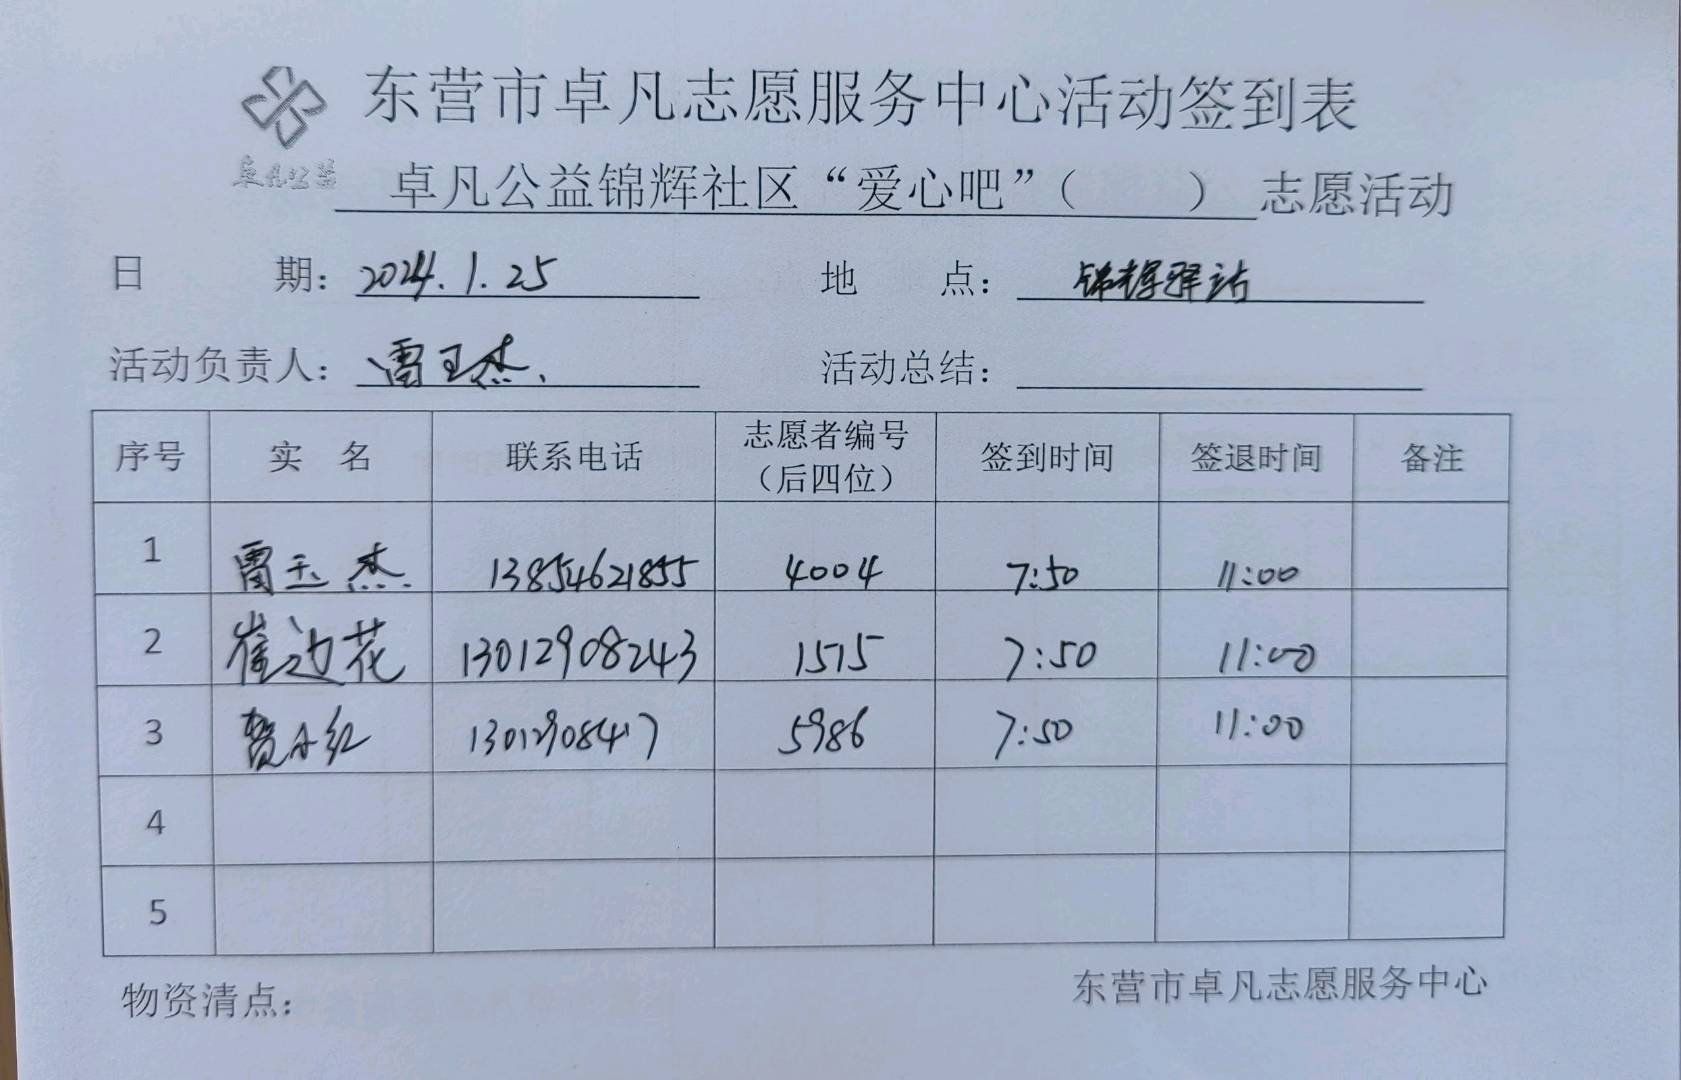 东营市卓凡志愿服务中心活动签到表
卓凡公益
卓凡公益锦辉社区“爱心吧”（ ）志愿活动
日 期：2024.1.25 地 点：锦辉驿站
活动负责人：雷玉杰. 活动总结：
序号 实 名 联系电话 志愿者编号（后四位） 签到时间 签退时间 备注
1 雷玉杰. 13854621855 4004 7:50 11:00
2 崔边花 13012908243 1515 7:50 11:00
3 贾小红 13012908417 5986 7:50 11:00
4
5
物资清点： 东营市卓凡志愿服务中心